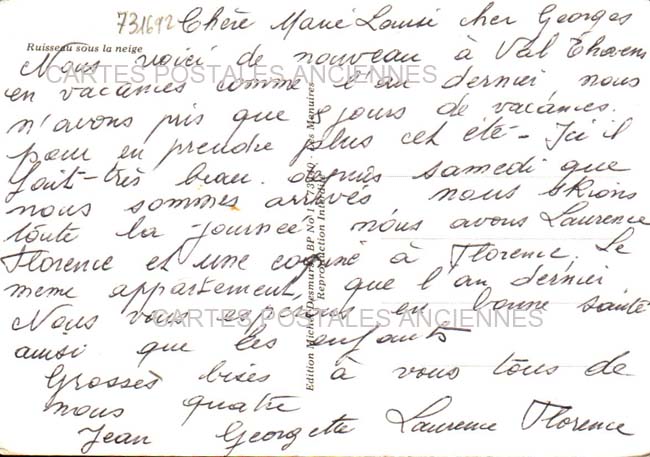 731692 Chère Marie Louise cher Georges
Ruisseau sous la neige
Nous voici de nouveau à Val Thorens
CARTES POSTALES ANCIENNES
en vacances comme l'an dernier nous
n'avons pris que 8 jours de vacances.
pour en prendre plus cet été - Ici il
fait très beau. depuis samedi que
nous sommes arrivés nous skions
toute la journée nous avons Laurence
Florence et une copine à Florence. Le
meme appartement que l'an dernier
Nous vous espérons en bonne santé
CARTES POSTALES ANCIENNES
ainsi que les enfants
Grosses bises à vous tous de
nous quatre
Jean Georgette Laurence Florence
Edition Michel Desmaris, BP No 1 - 73 Les Menuires
Reproduction Interdite